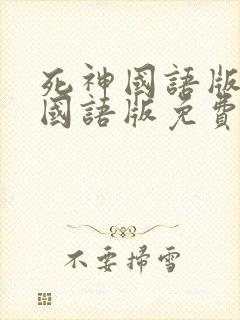 死神國語版
國語版免費
不要掃雪